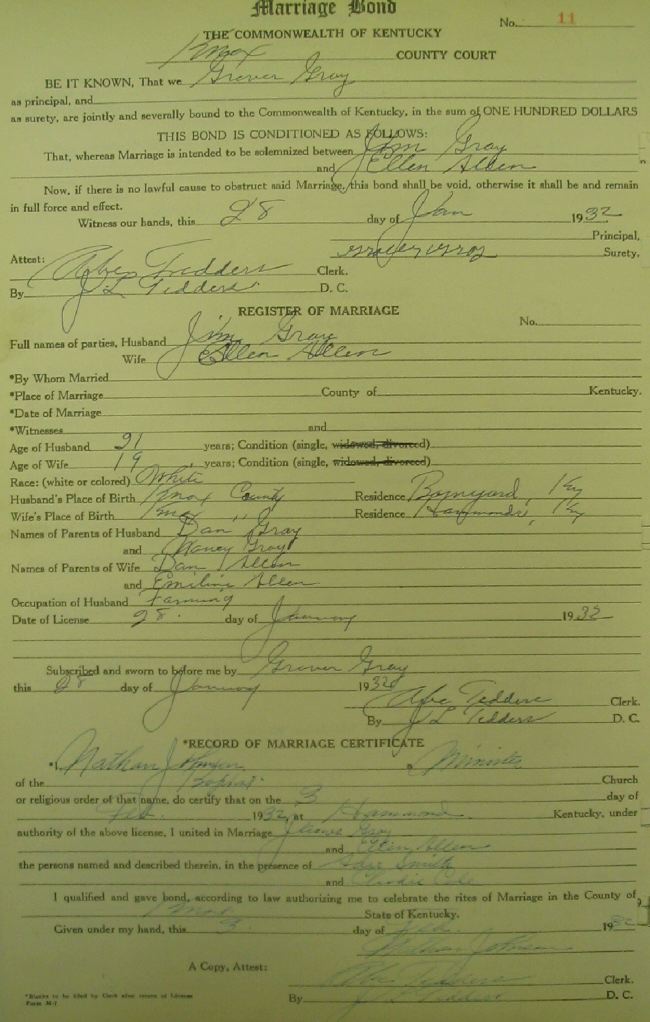 Marriage Bond
No. 11
THE COMMONWEALTH OF KENTUCKY
Knox COUNTY COURT
BE IT KNOWN, That we Grover Gray
as principal, and
as surety, are jointly and severally bound to the Commonwealth of Kentucky, in the sum of ONE HUNDRED DOLLARS
THIS BOND IS CONDITIONED AS FOLLOWS:
That, whereas Marriage is intended to be solemnized between Jim Gray
and Ellen Allen
Now, if there is no lawful cause to obstruct said Marriage, this bond shall be void, otherwise it shall be and remain
in full force and effect.
Witness our hands, this 28 day of Jan 1932
Principal,
Surety.
Attest:
Tedders Clerk.
By J L Tedders D. C.
REGISTER OF MARRIAGE
No.
Full names of parties, Husband Jim Gray
Wife Ellen Allen
*By Whom Married
*Place of Marriage County of Kentucky.
*Date of Marriage
*Witnesses and
Age of Husband 21 years; Condition (single, widowed, divorced)
Age of Wife 19 years; Condition (single, widowed, divorced)
Race: (white or colored) White
Husband's Place of Birth Knox County Residence Ky
Wife's Place of Birth Knox " Residence Hammonds, Ky
Names of Parents of Husband Dan Gray
and Nancy Gray
Names of Parents of Wife Dan Allen
and Emiline Allen
Occupation of Husband Farming
Date of License 28. day of January 1932
Subscribed and sworn to before me by Grover Gray
this 28 day of January 1932
Tedders Clerk.
By J L Tedders D. C.
*RECORD OF MARRIAGE CERTIFICATE
*I, Nathan Johnson a Minister
of the Baptist Church
or religious order of that name, do certify that on the 3 day of
Feb. 1932, at Hammond Kentucky, under
authority of the above license, I united in Marriage Gray
and Ellen Allen
the persons named and described therein, in the presence of Smith
and Cole
I qualified and gave bond, according to law authorizing me to celebrate the rites of Marriage in the County of
Knox State of Kentucky.
Given under my hand, this 3 day of Feb. 1932
Nathan Johnson
A Copy, Attest:
Tedders Clerk.
By J L Tedders D. C.
*Blanks to be filed by Clerk after return of License
Form M-7